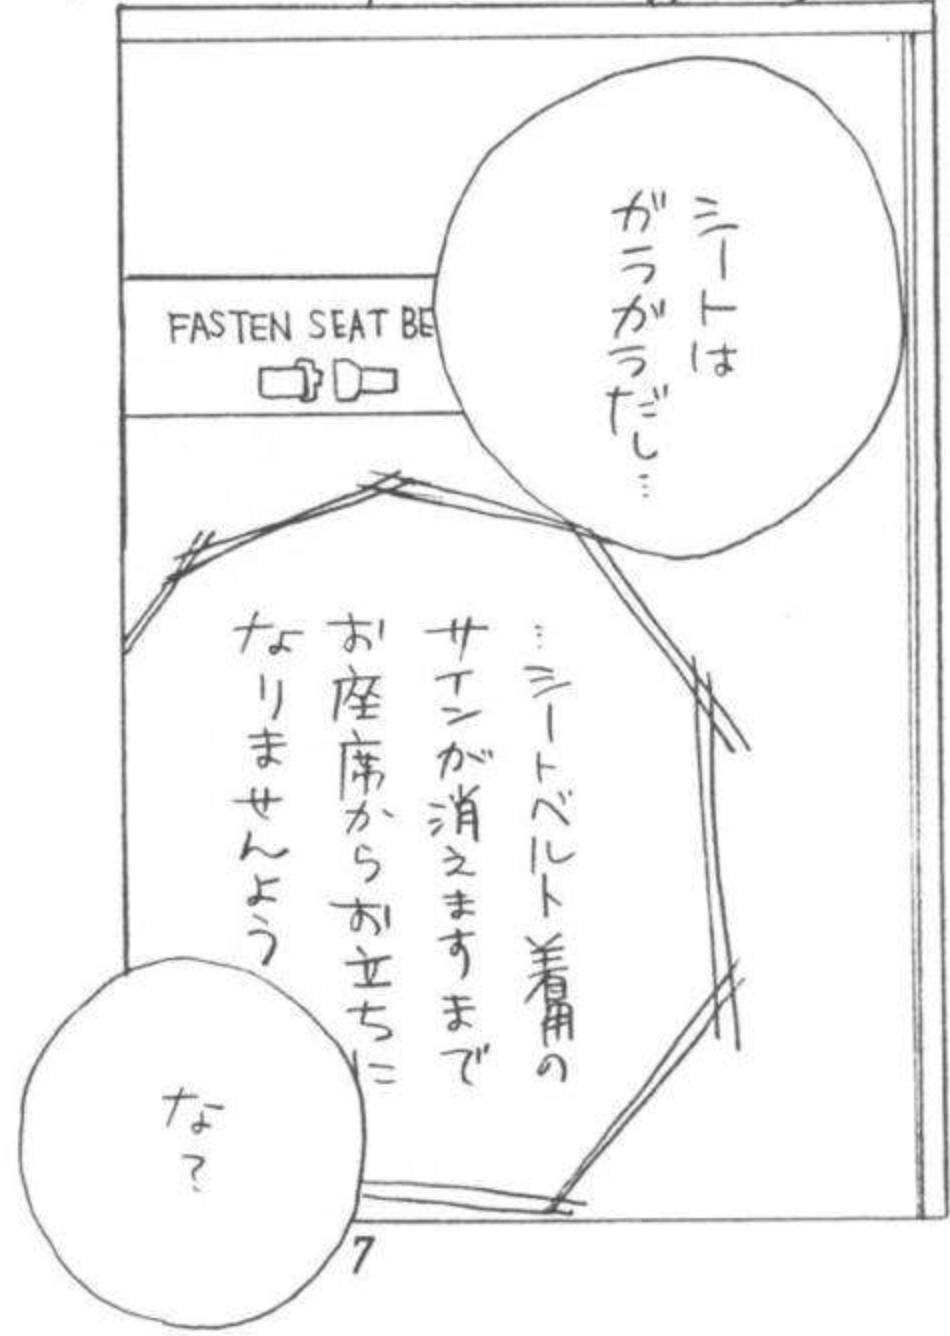 シートは
ガラガラだし…
FASTEN SEAT BE
…シートベルト着用の
サインが消えますまで
お座席からお立ちに
なりませんよう
な?
7